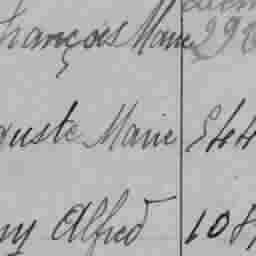 François Marie 29
guste Marie 544
ny Alfred 108